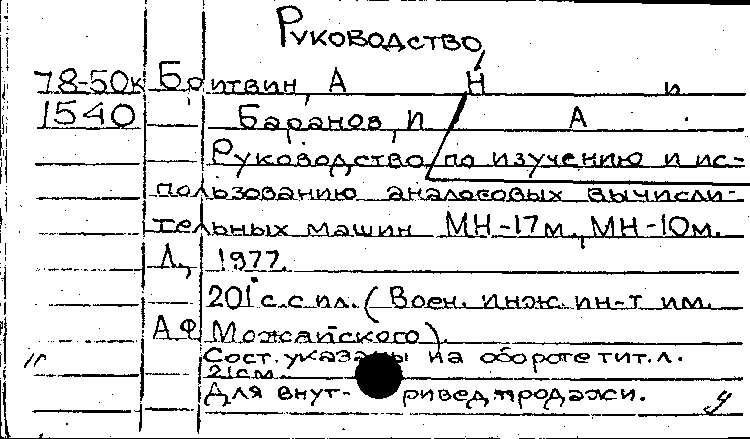 Руководство
78-50к Бритвин, А Н и
1540 Баранов, П А
Руководство по изучению и ис-
пользованию аналоговых вычисли-
тельных машин МН-17м, МН-10м.
Л, 1977.
201 с. с ил. (Воен. инж. ин-т им.
А.Ф. Можайского).
Сост. указаны на обороте тит. л.
21см.
Для внут- ривед. продажи.